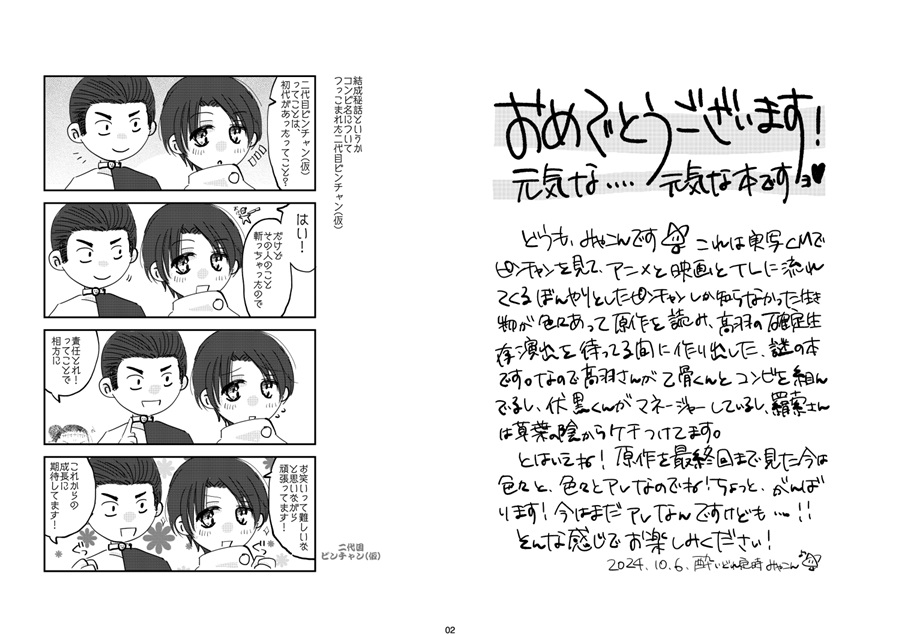 おめでとうございます!
元気な‥‥ 元気な本ですョ♥
どうも、みゃこんです これは実写CMで
ピンチャンを見て、アニメと映画とTLに流れ
てくるぼんやりとしたピンチャンしか知らなかった生き
物が色々あって原作を読み、髙羽の確定生
存演出を待ってる間に作り出した、謎の本
です。なので髙羽さんが乙骨くんとコンビを組ん
でるし、伏黒くんがマネージャーしているし、羂索さん
は草葉の陰からケチつけてます。
とはいえね!原作を最終回まで見た今は
色々と、色々とアレなのでね!ちょっと、がんば
ります!今はまだアレなんですけども…!!
そんな感じでお楽しみください!
2024.10.6.酔いどれ危時みゃこん
結成秘話というか
コンビ名について
つっこまれた二代目ピンチャン(仮)
二代目ピンチャン(仮)
ってことは、
初代があったってこと?
はい!
だけど
その人のこと
斬っちゃったので
責任とれ!
ってことで
相方に
お笑いって難しいな
と思いながら
頑張ってます!
これからの
成長に
期待してます!
二代目
ピンチャン(仮)
02